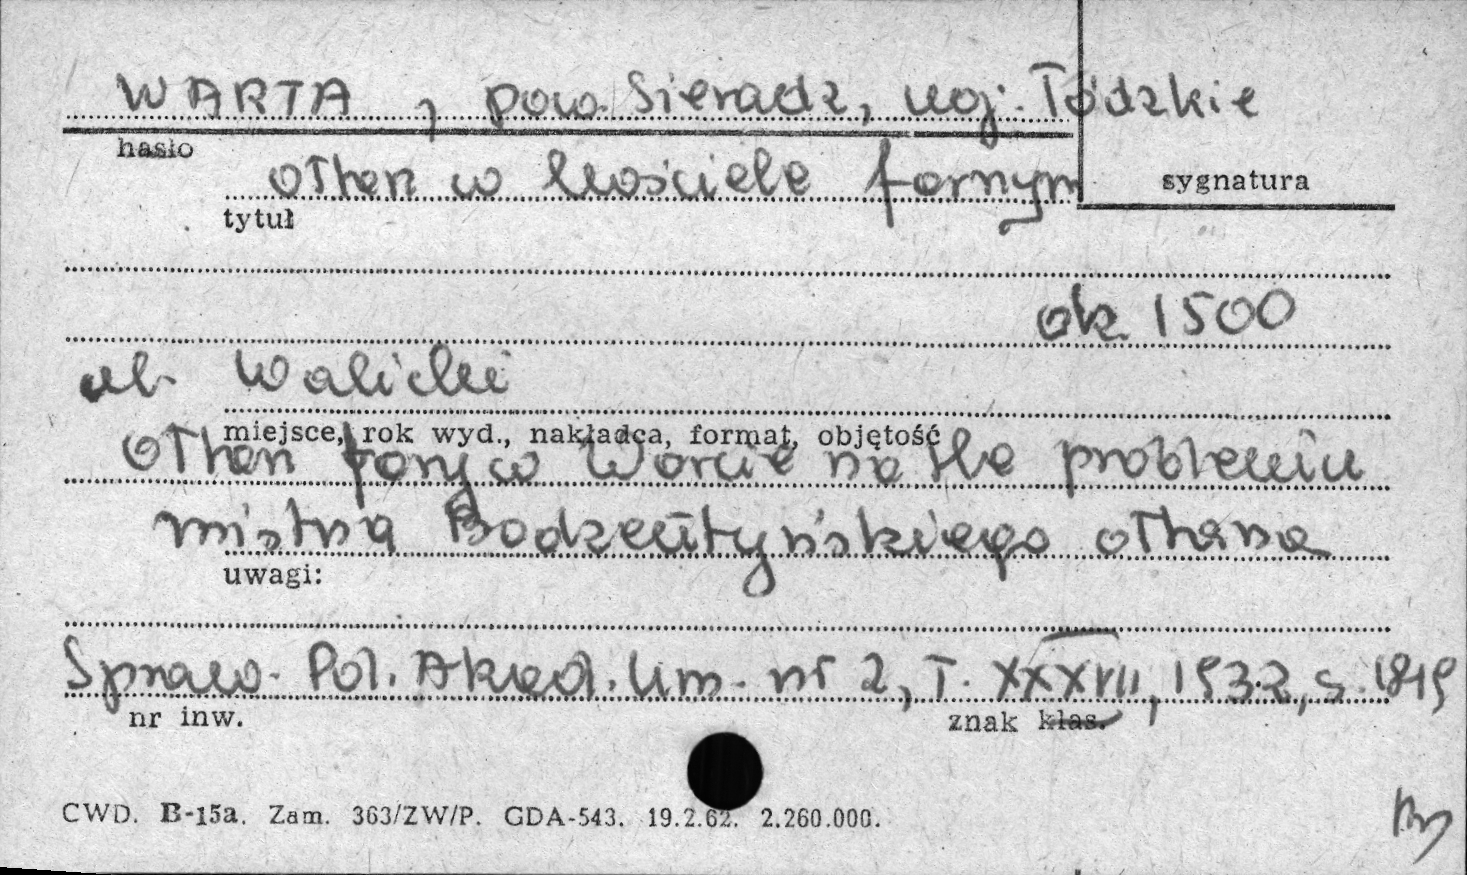 WARTA, pow. Sieradz, woj. Łódzkie
hasło
ołtarz w kościele farnym
sygnatura
tytuł
ok. 1500
Walicki
miejsce, rok wyd., nakładca, format, objętość
Ołtarz farny w Warcie na tle problemu
mistrza Bodzentyńskiego ołtarza
uwagi:
Spraw. Pol. Akad. Um. nr 2, T. XXXVII, 1932, s.
nr inw.
znak klas.
CWD. B-15a. Zam. 363/ZW/P. GDA-543. 19.2.62. 2.260.000.